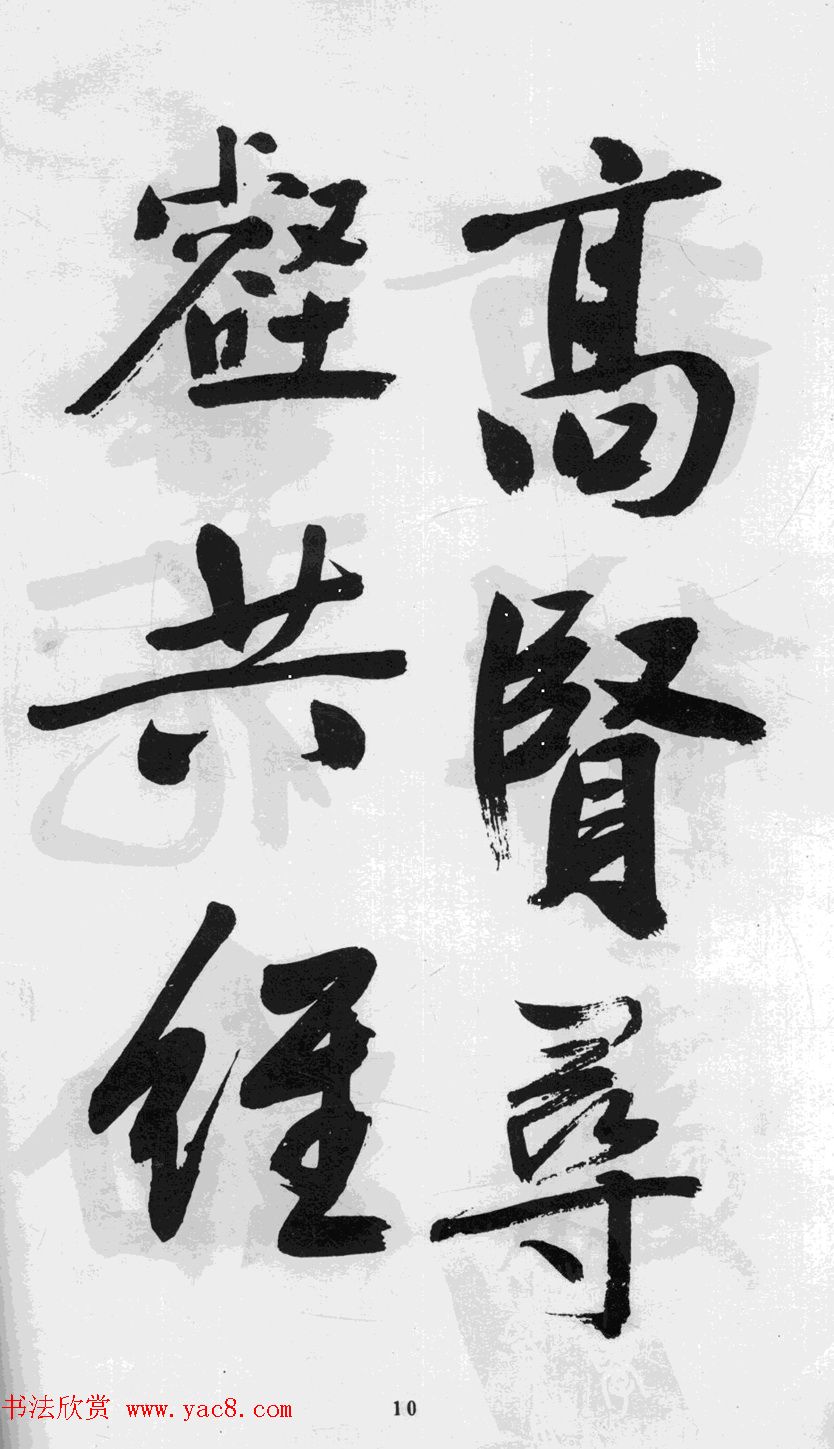 高賢尋
壑共經
书法欣赏 www.yac8.com
10